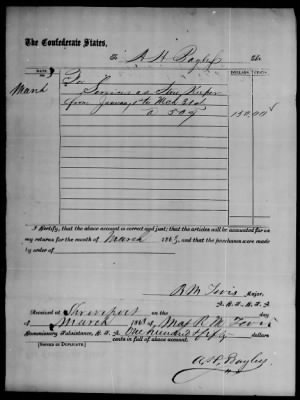 The Confederate States,
To A. H. Bayley Dr.
DATE. DOLLARS. CENTS.
March To
Services as Store Keeper
from January 1st to Mch 31st
a 50 150.00
I Certify, that the above account is correct and just; that the articles will be accounted for on
my returns for the month of March 1863, and that the purchases were made
by order of
R M Major,
Received at Shreveport on the day
of March 1863 of Maj. R. M.
Commissary Subsistence, One hundred & fifty
cents in full of above account.
[SIGNED IN DUPLICATE.]
A. H. Bayley